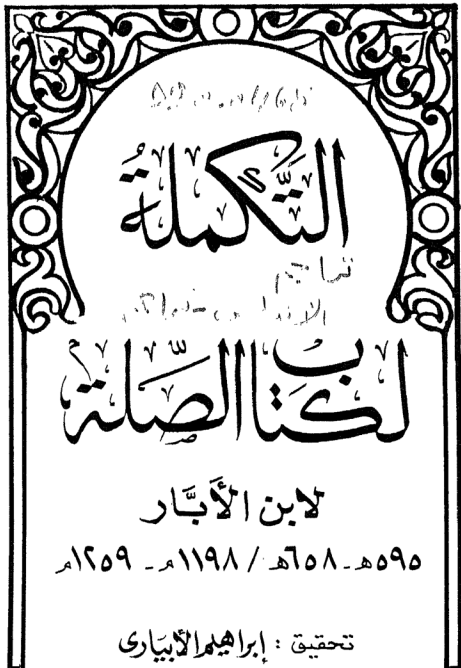 التَّكملةُ
تراجم
لكتاب الصِّلة
لابن الأبَّار
٥٩٥هـ - ٦٥٨هـ / ١١٩٨م - ١٢٥٩م
تحقيق : إبراهيم الأبيارى